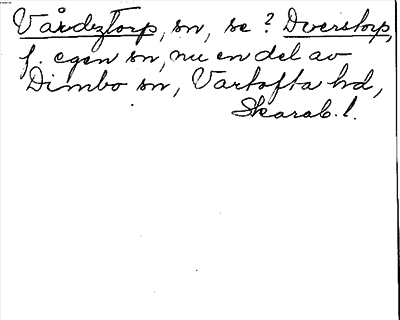 Vårdeztorp, sn, se? Dverstorp,
f. egen sn, nu en del av
Dimbo sn, Vartofta hd,
Skarab. l.